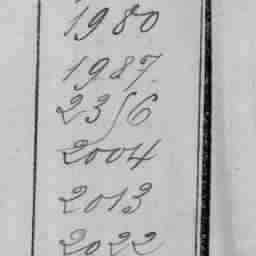 1980
1987
2356
2004
2013
2022